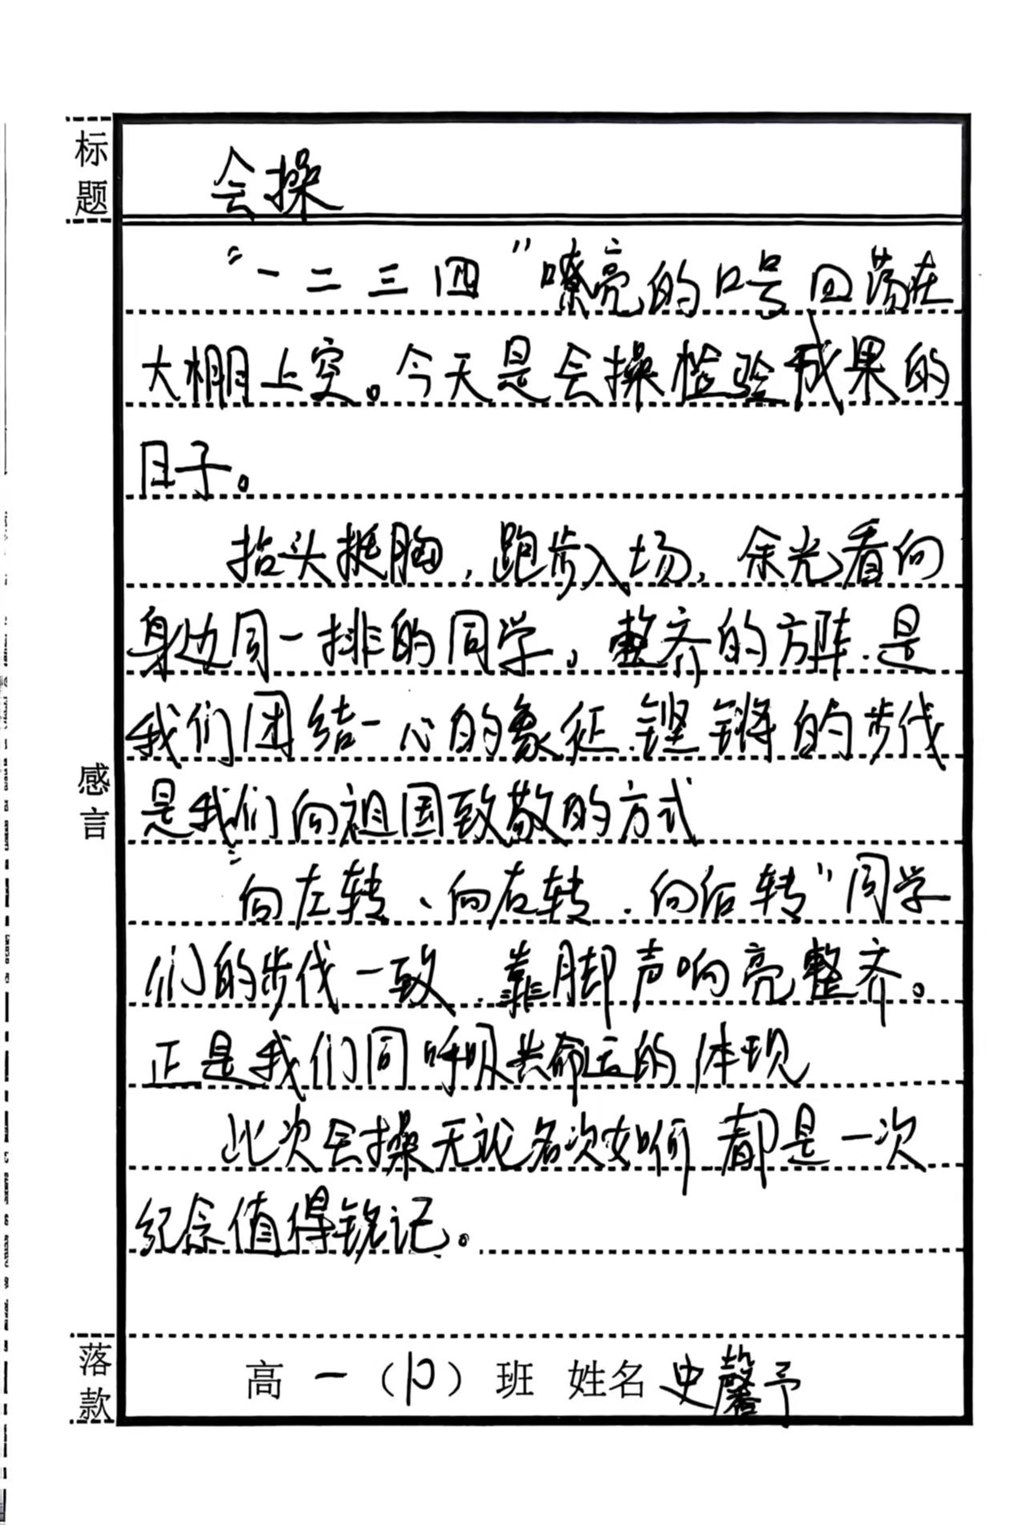 标题
会操
“一二三四”嘹亮的口号回荡在
大棚上空。今天是会操检验成果的
日子。
抬头挺胸，跑步入场，余光看向
身边同一排的同学，整齐的方阵.是
我们团结一心的象征.铿锵的步伐
是我们向祖国致敬的方式
“向左转、向右转.向后转”同学
们的步伐一致.靠脚声响亮整齐。
正是我们同呼吸共命运的体现
此次会操无论名次如何 都是一次
纪念值得铭记。
感言
落款
高一（10）班 姓名 史馨予